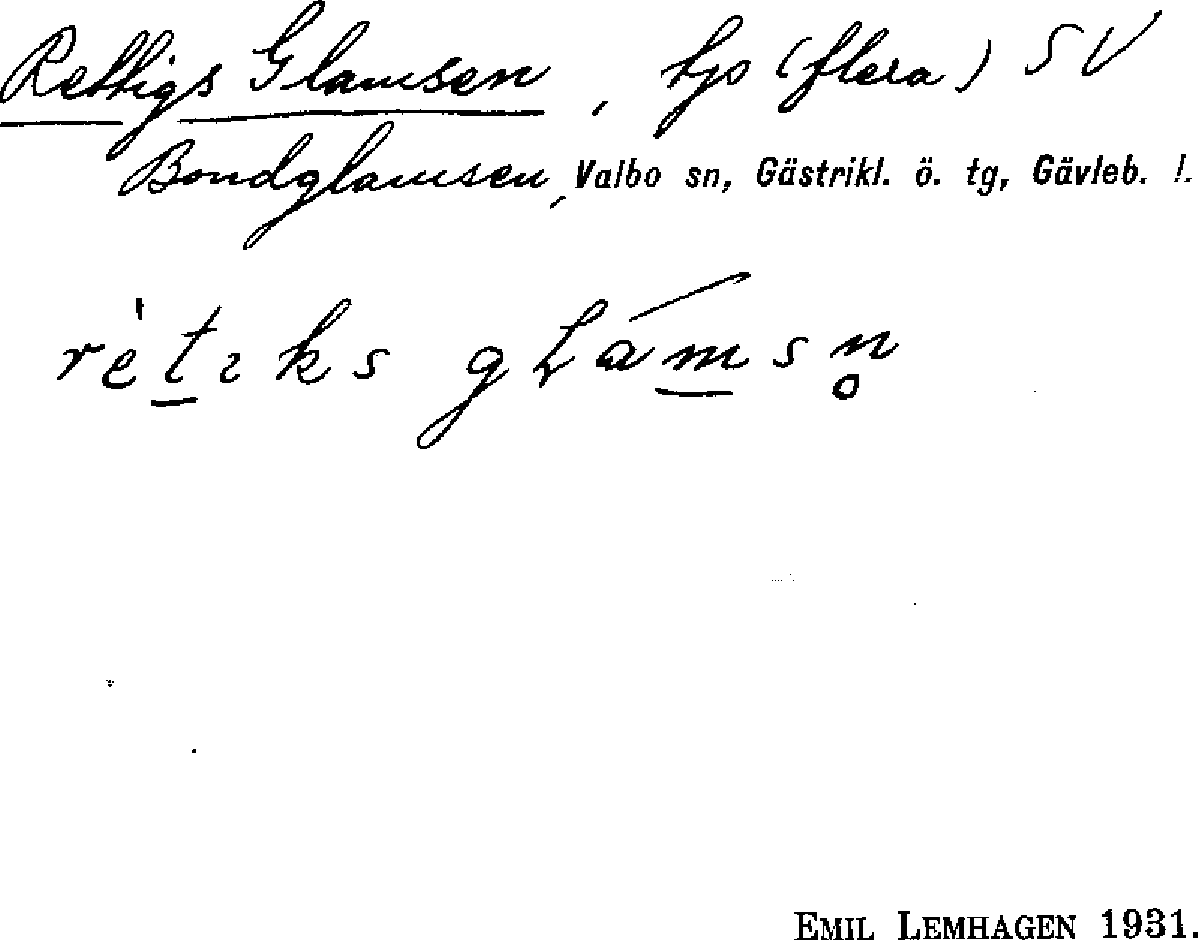 Rettigs Glamsen, tjo (flera) SV
Bondglamsen, Valbo sn, Gästrikl. ö. tg, Gävleb. l.
rètɩks gɫámsn̥
EMIL LEMHAGEN 1931.